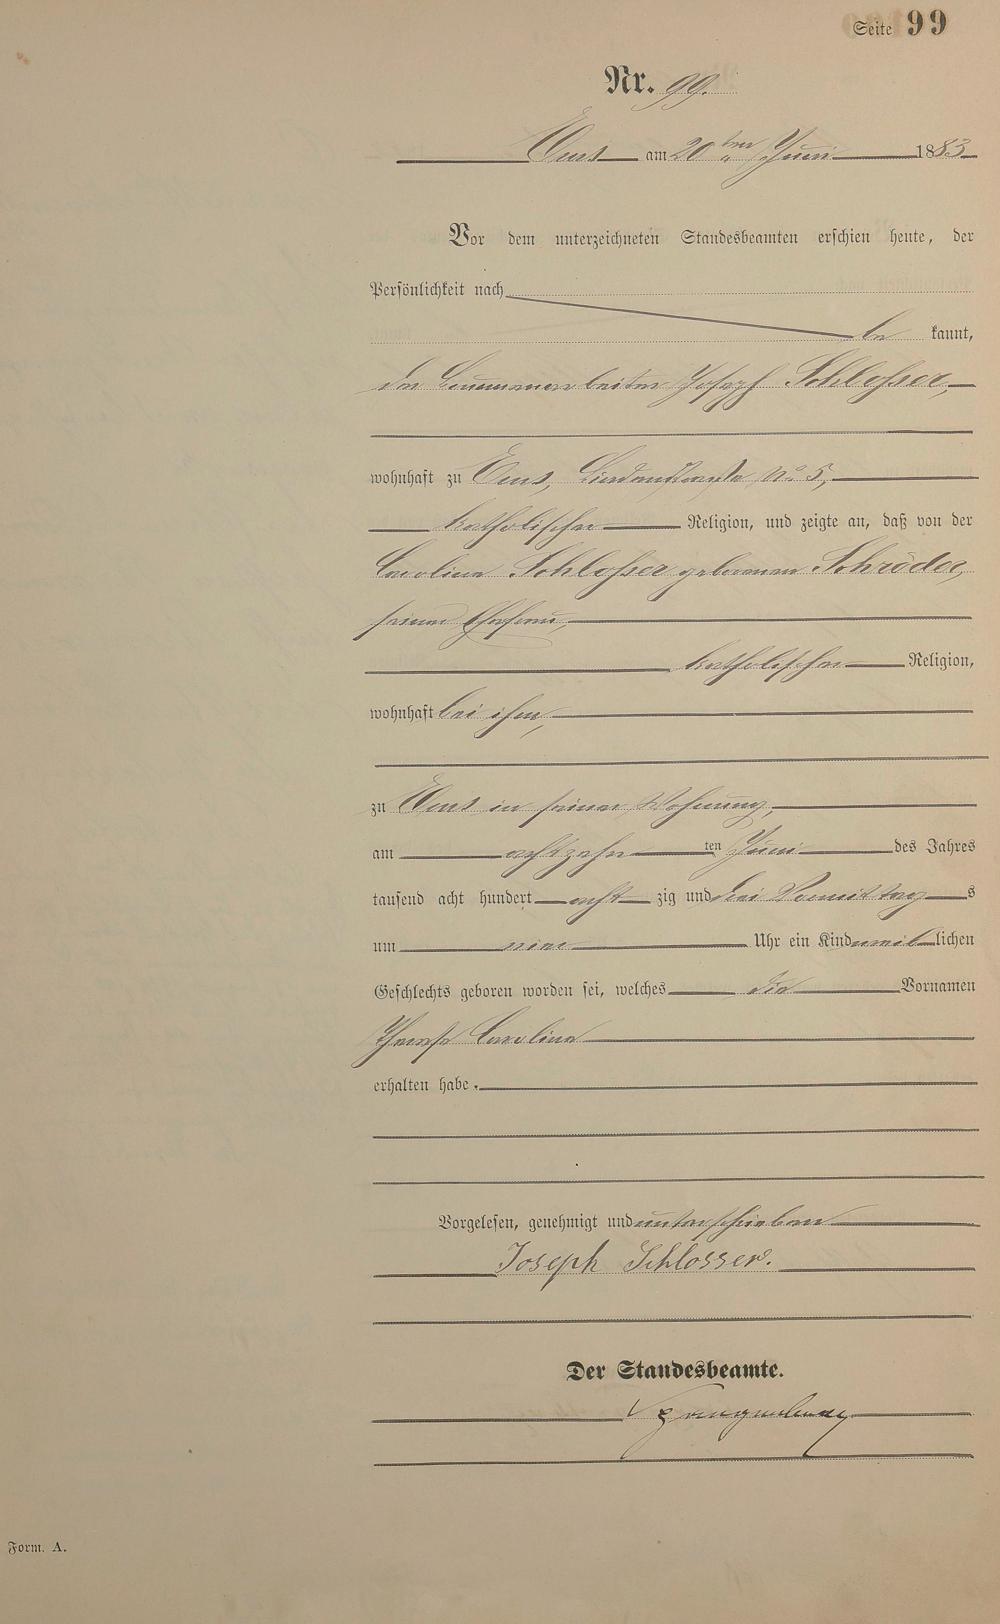 Seite 99
Nr. 99.
Ems am 20ten Juni 1883
Vor dem unterzeichneten Standesbeamten erschien heute, der
Persönlichkeit nach
be kannt,
der Brunnenarbeiter Joseph Schlosser,
wohnhaft zu Ems, Lindenstraße No 5,
katholischer Religion, und zeigte an, daß von der
Caroline Schlosser geborenen Schröder,
seiner Ehefrau,
katholischer Religion,
wohnhaft bei ihm,
zu Ems in seiner Wohnung,
am achtzehn ten Juni des Jahres
tausend acht hundert acht zig und drei Vormittag s
um Uhr ein Kind weib lichen
Geschlechts geboren worden sei, welches die Vornamen
Therese Caroline
erhalten habe.
Vorgelesen, genehmigt und unterschrieben
Joseph Schlosser.
Der Standesbeamte.
Form. A.